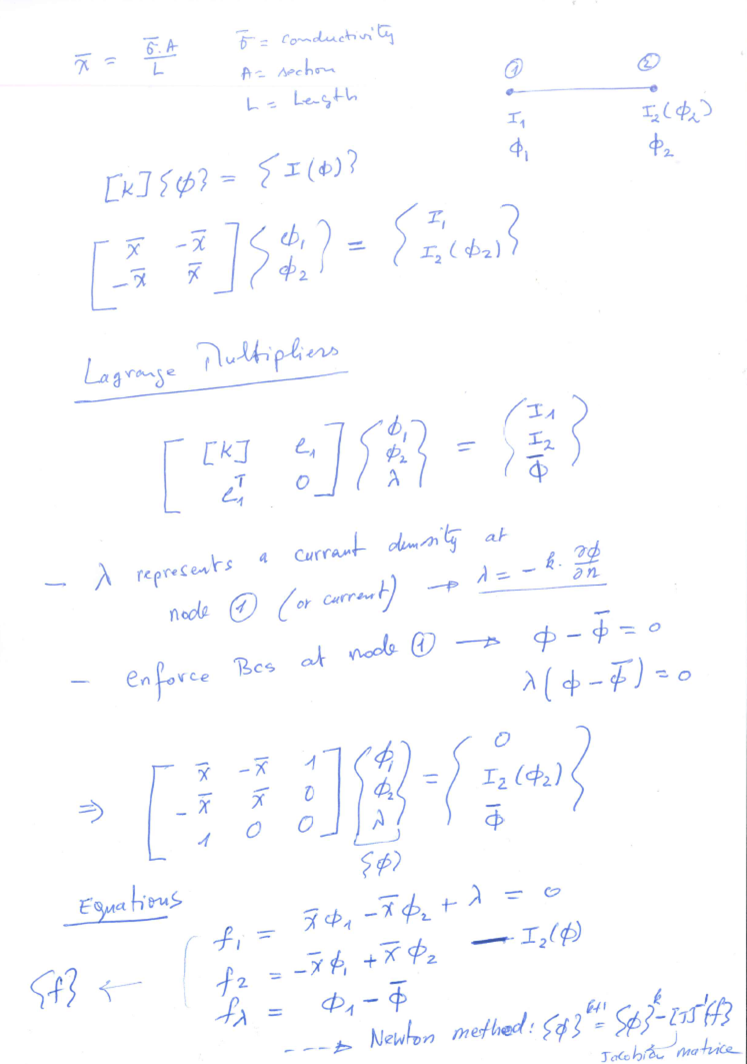 x̄ = σ̄.A / L    σ̄ = conductivity
A = section
L = Length
① ②
I₁    I₂(ϕ₂)
ϕ₁    ϕ₂
[K]{ϕ} = {I(ϕ)}
[x̄ -x̄; -x̄ x̄]{ϕ₁; ϕ₂} = {I₁; I₂(ϕ₂)}
Lagrange Multipliers
[[K] e₁; e₁ᵀ 0]{ϕ₁; ϕ₂; λ} = {I₁; I₂; ϕ̄}
- λ represents a currant density at
node ① (or current) → λ = -k. ∂ϕ/∂n
- enforce Bcs at node ① → ϕ - ϕ̄ = 0
λ(ϕ - ϕ̄) = 0
⇒ [x̄ -x̄ 1; -x̄ x̄ 0; 1 0 0]{ϕ₁; ϕ₂; λ} = {0; I₂(ϕ₂); ϕ̄}
{ϕ}
Equations
f₁ = x̄ϕ₁ - x̄ϕ₂ + λ = 0
{f} ← f₂ = -x̄ϕ₁ + x̄ϕ₂ - I₂(ϕ)
fλ = ϕ₁ - ϕ̄
---→ Newton method: {ϕ}ᵏ⁺¹ = {ϕ}ᵏ - [J]⁻¹{f}
Jacobian matrice